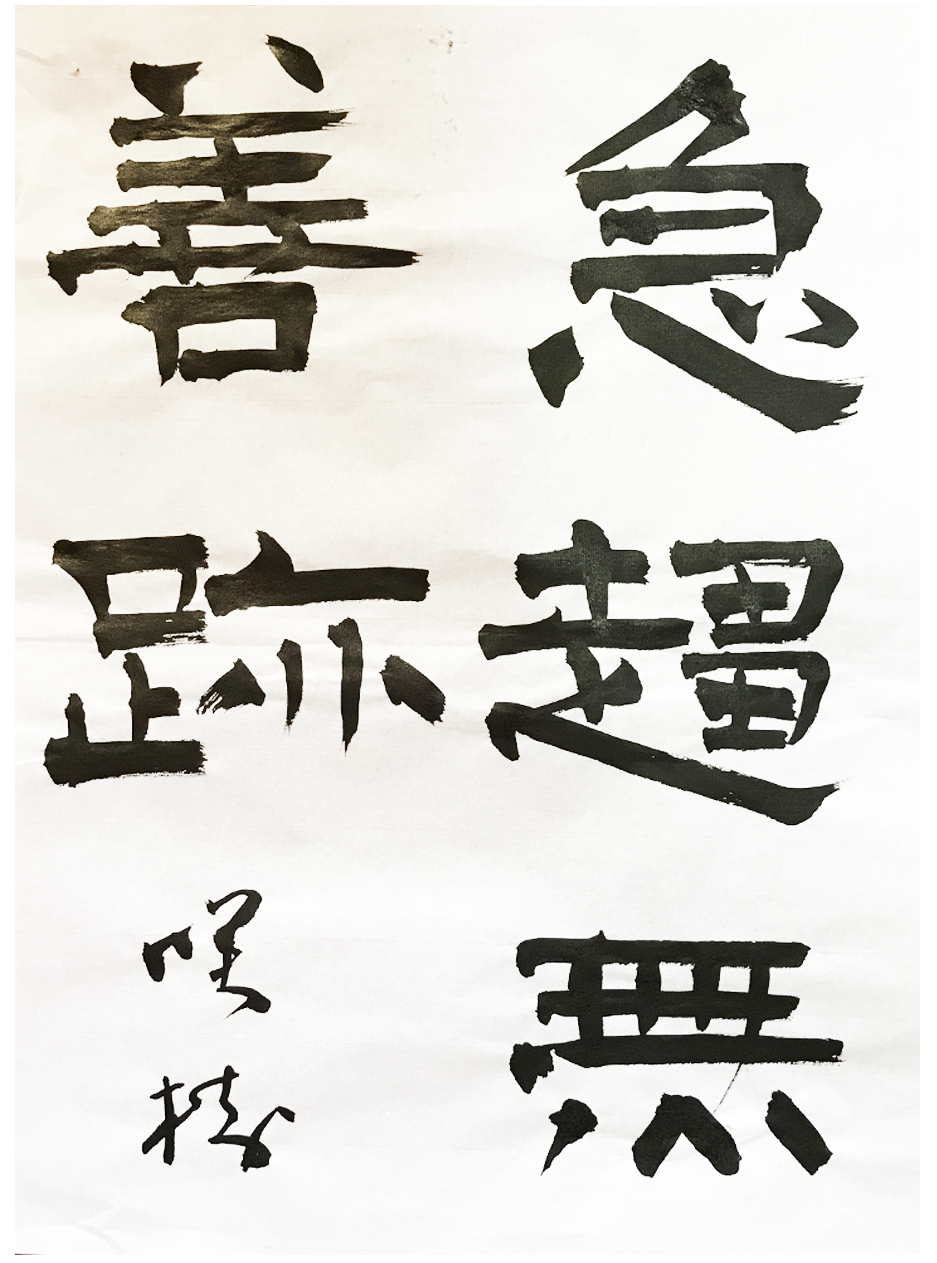 急趨無
善跡
樹